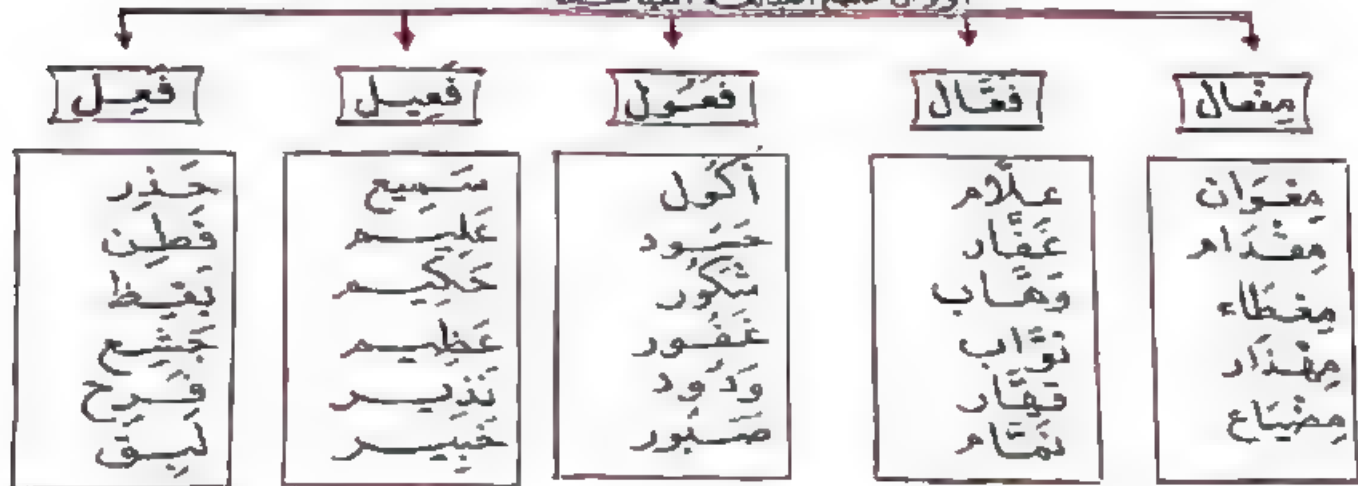 أوزان صيغ المبالغة القياسية
مِفْعَال
مِعْوَان
مِقْدَام
مِعْطَاء
مِهْذَار
مِضْيَاع
فَعَّال
عَلَّام
غَفَّار
وَهَّاب
تَوَّاب
قَهَّار
نَمَّام
فَعُول
أَكُول
حَسُود
شَكُور
غَفُور
وَدُود
صَبُور
فَعِيل
سَمِيع
عَلِيم
حَكِيم
عَظِيم
نَذِير
خَبِير
فَعِل
حَذِر
فَطِن
يَقِظ
جَشِع
فَرِح
لَبِق